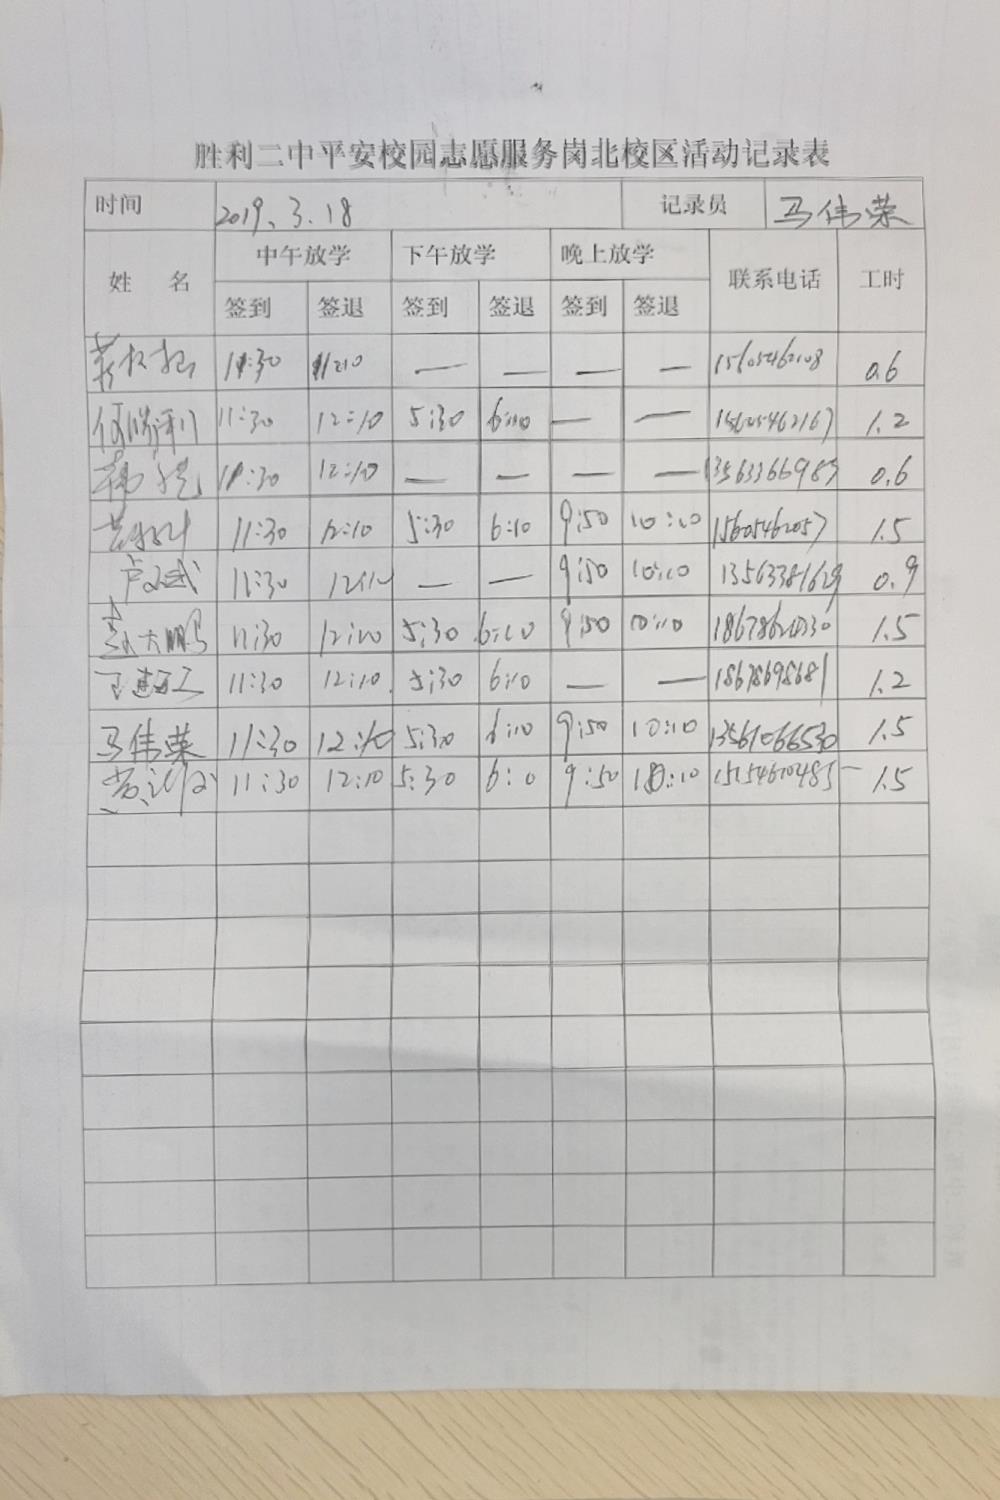 胜利二中平安校园志愿服务岗北校区活动记录表
时间 2019.3.18 记录员 马伟荣
姓 名 中午放学 下午放学 晚上放学 联系电话 工时
签到 签退 签到 签退 签到 签退
11:30 — — — — 15605462108 0.6
何胜利 11:30 12:10 5:30 6:10 — — 15605462167 1.2
11:30 12:10 — — — — 0.6
11:30 12:10 5:30 6:10 9:50 10:10 15605462057 1.5
11:30 — — 9:50 10:10 13563381629 0.9
大鹏 11:30 12:10 5:30 6:10 9:50 10:10 1.5
11:30 12:10 5:30 6:10 — — 18678698681 1.2
马伟荣 11:30 12:10 5:30 6:10 9:50 10:10 13561066530 1.5
11:30 12:10 5:30 6:10 9:50 10:10 15154610485 1.5